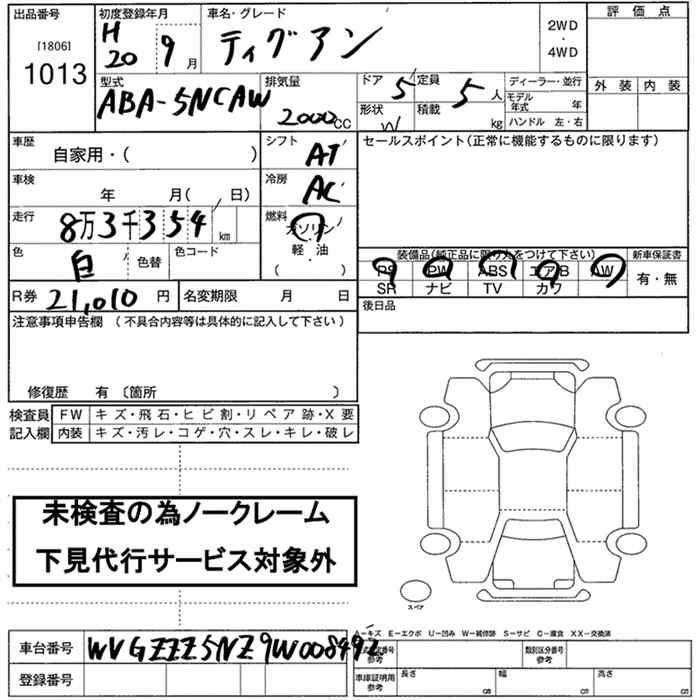 出品番号
[1806]
1013
初度登録年月
H
20 9月
車名・グレード
ティグアン
2WD
・
4WD
評価点
外装 内装
型式
ABA-5NCAW
排気量
2000cc
ドア 5
定員 5人
形状 W
積載 kg
ディーラー・並行
モデル年式 年
ハンドル 左・右
車歴
自家用・( )
シフト
AT
セールスポイント(正常に機能するものに限ります)
車検
年 月( 日)
冷房
AC
走行
8万3千354km
燃料
ガソリン
軽・油
・
( )
色
白
色替
色コード
装備品(純正品に限り丸をつけて下さい)
新車保証書
PS PW ABS エアB AW
SR ナビ TV カワ
有・無
R券 21,010円
名変期限 月 日
後日品
注意事項申告欄(不具合内容等は具体的に記入して下さい)
修復歴 有〔箇所 〕
検査員 FW キズ・飛石・ヒビ割・リペア跡・X要
記入欄 内装 キズ・汚レ・コゲ・穴・スレ・キレ・破レ
未検査の為ノークレーム
下見代行サービス対象外
スペア
A−キズ E−エクボ U−凹み W−補修跡 S−サビ C−腐食 XX−交換済
車台番号 WVGZZZ5NZ9W008492
参考
類別区分番号
参考
登録番号
車庫証明用
参考
長さ cm
幅 cm
高さ cm